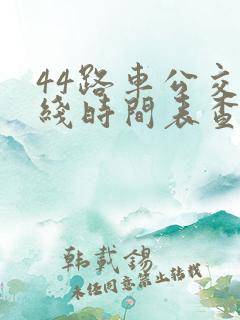 44路车公交
綫時間表查
韩載锡
未经同意禁止转载